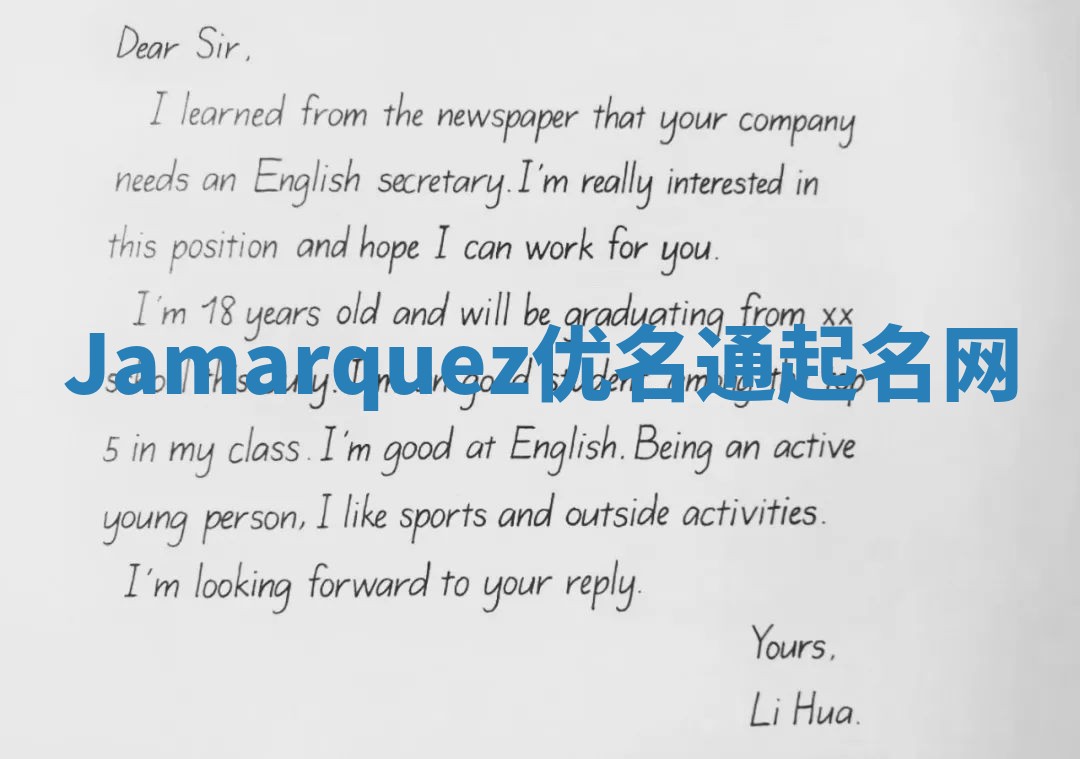 Dear Sir,
I learned from the newspaper that your company
needs an English secretary. I'm really interested in
this position and hope I can work for you.
I'm 18 years old and will be graduating from xx
Jamarquez优名通起名网
school this July. I'm an good student among the top
5 in my class. I'm good at English. Being an active
young person, I like sports and outside activities.
I'm looking forward to your reply.
Yours,
Li Hua.